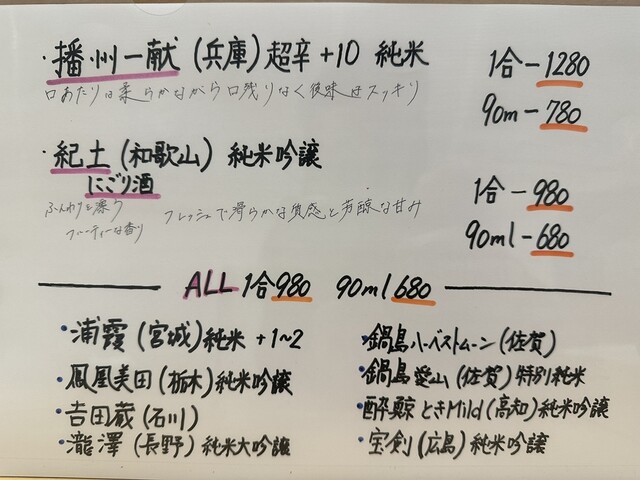 ・播州一献(兵庫)超辛+10 純米 1合-1280
口あたりは柔らかながら口残りなく後味はスッキリ 90m-780
・紀土(和歌山) 純米吟醸 1合-980
にごり酒
ふんわりと漂う フレッシュで滑らかな質感と芳醇な甘み
フルーティーな香り 90ml-680
ALL 1合980 90ml 680
・浦霞(宮城)純米 +1~2
・鳳凰美田(栃木)純米吟醸
・吉田蔵(石川)
・瀧澤(長野)純米大吟醸
・鍋島ハーベストムーン(佐賀)
・鍋島愛山(佐賀)特別純米
・酔鯨ときMild(高知)純米吟醸
・宝剣(広島)純米吟醸